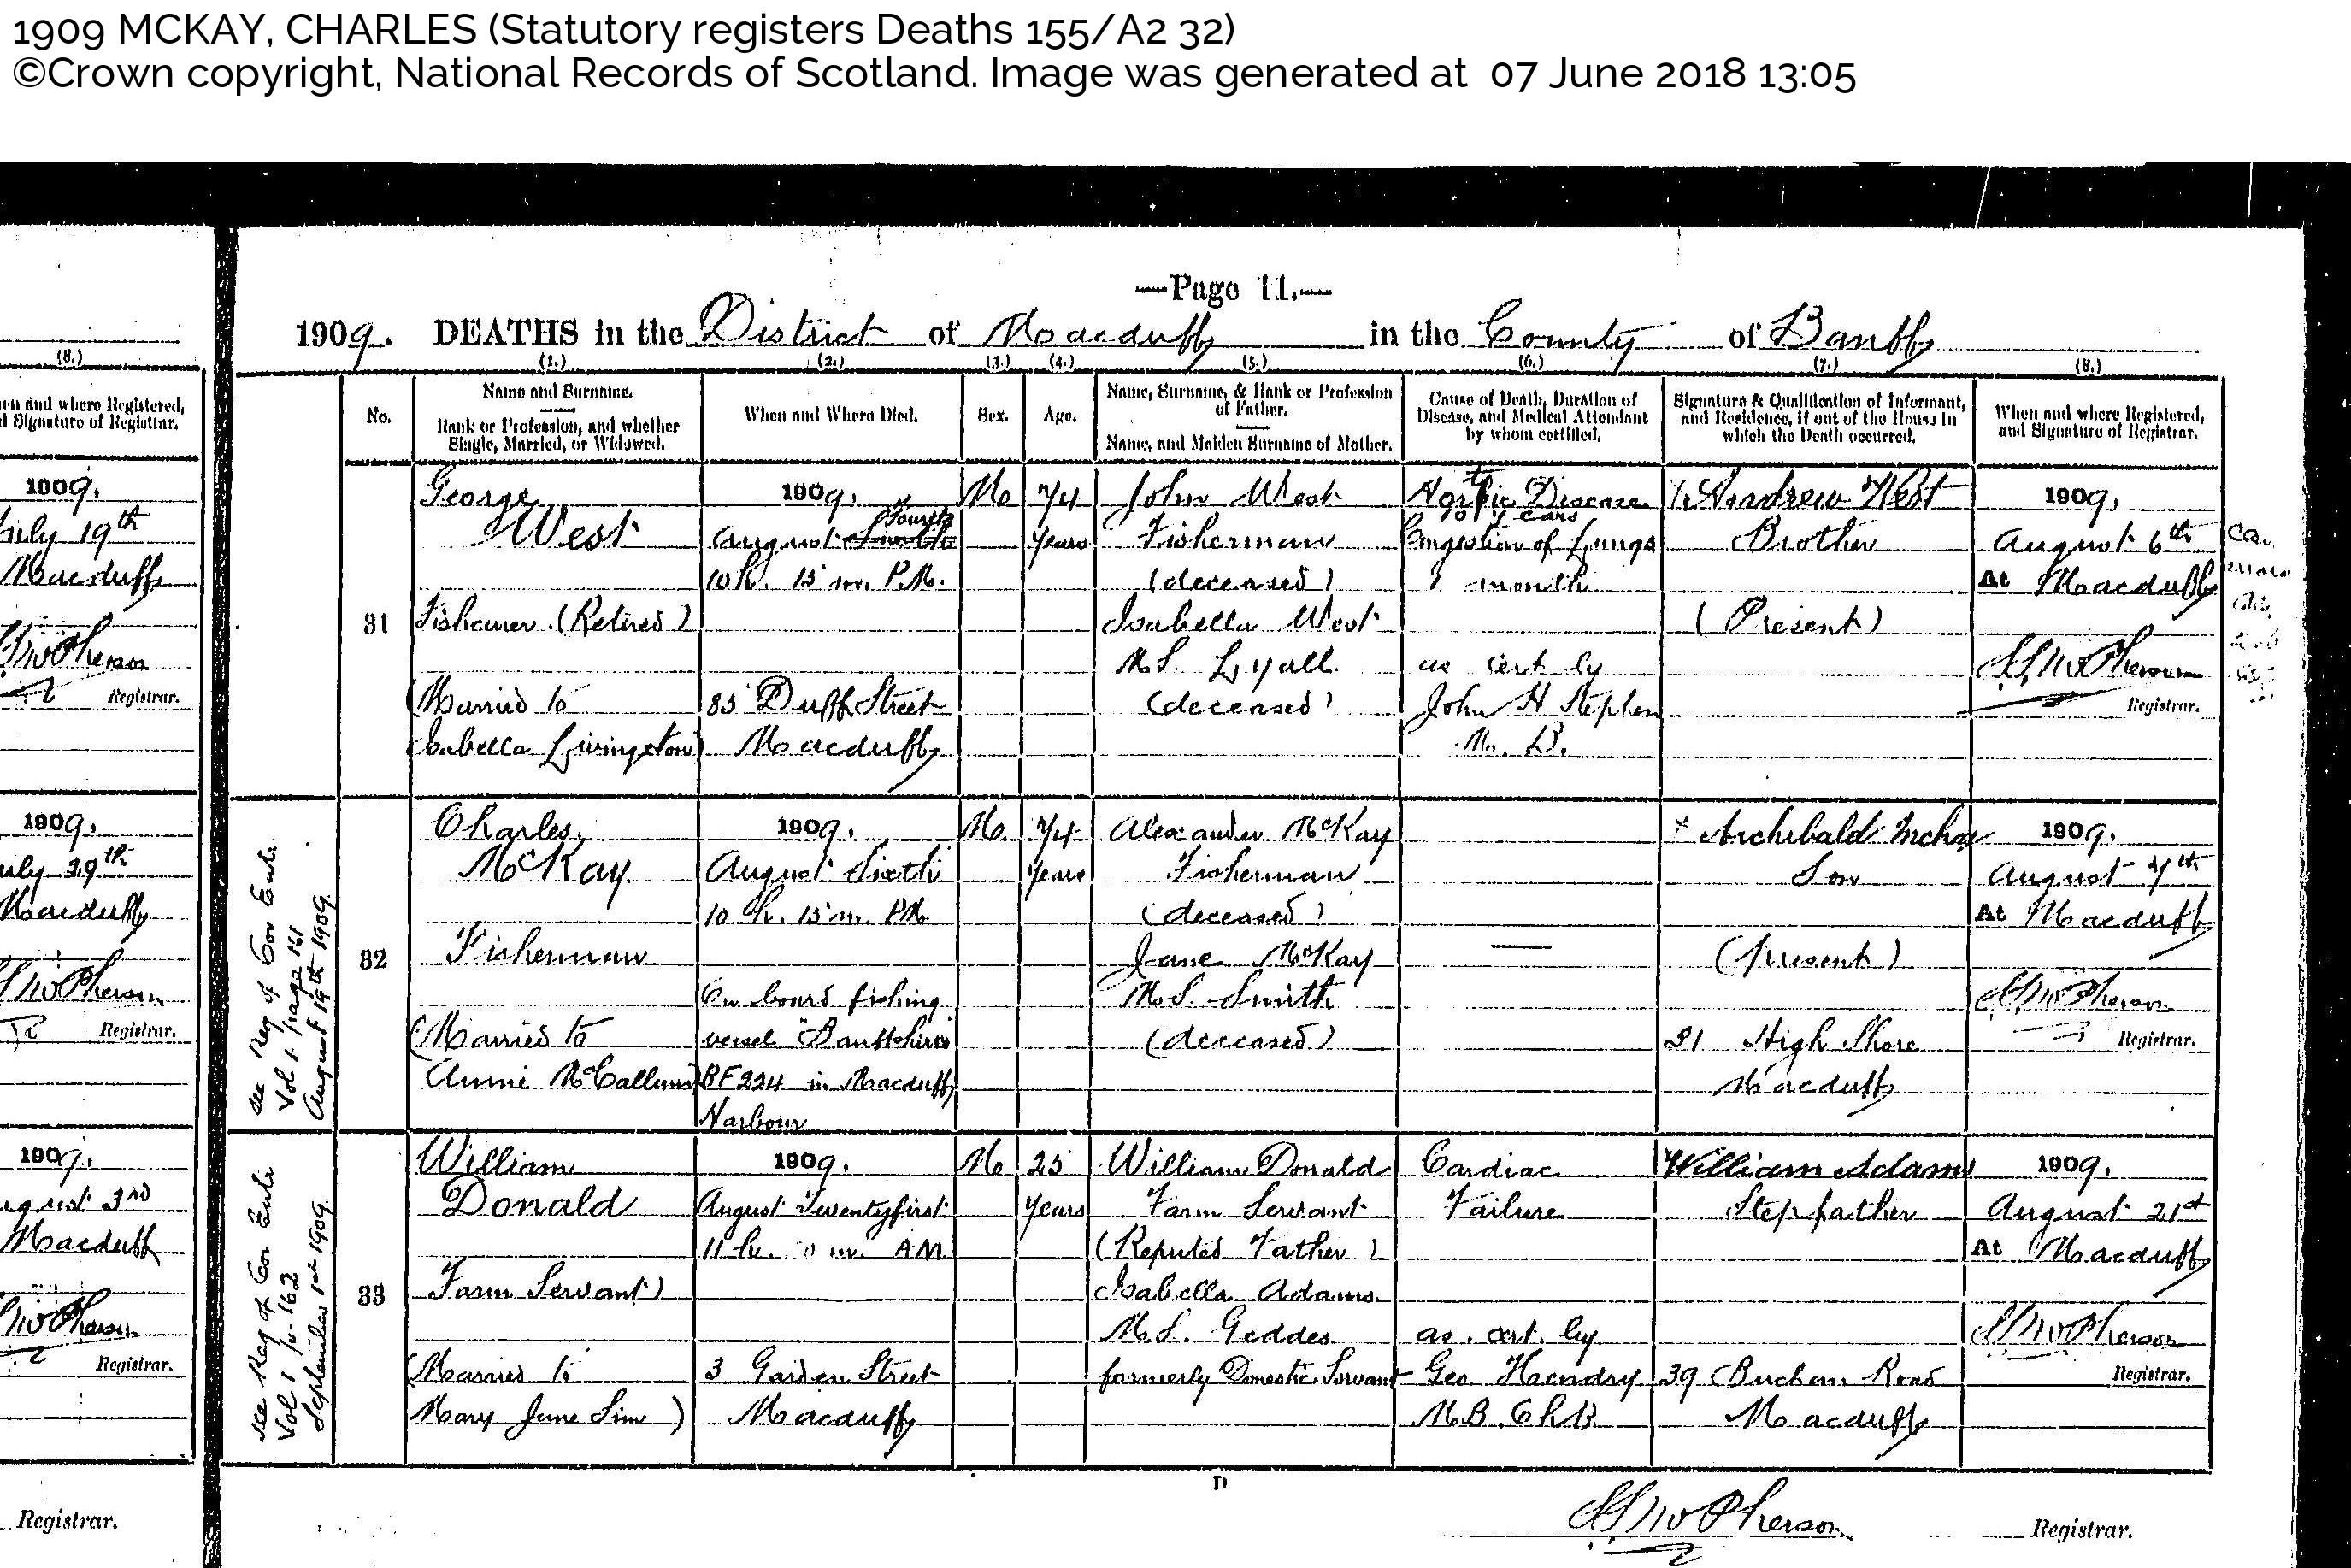 1909 MCKAY, CHARLES (Statutory registers Deaths 155/A2 32)
©Crown copyright, National Records of Scotland. Image was generated at 07 June 2018 13:05
—Page 11.—
1909. DEATHS in the District of Macduff in the County of Banff
(1.) (2.) (3.) (4.) (5.) (6.) (7.) (8.)
No.
Name and Surname.
Rank or Profession, and whether
Single, Married, or Widowed.
When and Where Died.
Sex.
Age.
Name, Surname, & Rank or Profession
of Father.
Name, and Maiden Surname of Mother.
Cause of Death, Duration of
Disease, and Medical Attendant
by whom certified.
Signature & Qualification of Informant,
and Residence, if out of the House in
which the Death occurred.
When and where Registered,
and Signature of Registrar.
31
George
West
Fishcurer (Retired)
(Married to
Isabella Livingston)
1909.
August Fourth
10 h. 15 m. P.M.
85 Duff Street
Macduff
M
74
years
John West
Fisherman
(deceased)
Isabella West
M.S. Lyall
(deceased)
Aortic Disease
Years
Congestion of Lungs
1 month
as cert by
John H Stephen
M. B.
Andrew West
Brother
(Present)
1909.
August 6th
At Macduff
Registrar.
See Reg of Cor Entr
Vol 1. page 161
August 19th 1909.
32
Charles
McKay
Fisherman
(Married to
Annie McCallum)
1909.
August Sixth
10 h. 15 m. P.M.
On board fishing
vessel "Banffshire"
BF 224 in Macduff
Harbour
M
74
years
Alexander McKay
Fisherman
(deceased)
Jane McKay
M.S. Smith
(deceased)
—
x Archibald McKay
Son
(present)
31 High Shore
Macduff
1909.
August 7th
At Macduff
Registrar.
See Reg of Cor Entr
Vol 1 p. 162
September 1st 1909.
33
William
Donald
Farm Servant
(Married to
Mary Jane Sim)
1909.
August Twentyfirst
11 h. 0 m. AM.
3 Garden Street
Macduff
M
25
years
William Donald
Farm Servant
(Reputed Father)
Isabella Adams
M.S. Geddes
formerly Domestic Servant
Cardiac
Failure
as. cert. by
Geo Hendry
M.B. Ch.B
William Adams
Stepfather
39 Buchan Road
Macduff
1909.
August 21st
At Macduff
Registrar.
D
Registrar.
(8.)
1909.
July 19th
Macduff
Registrar.
1909.
July 29th
Macduff
Registrar.
1909.
August 3rd
Macduff
Registrar.
Registrar.